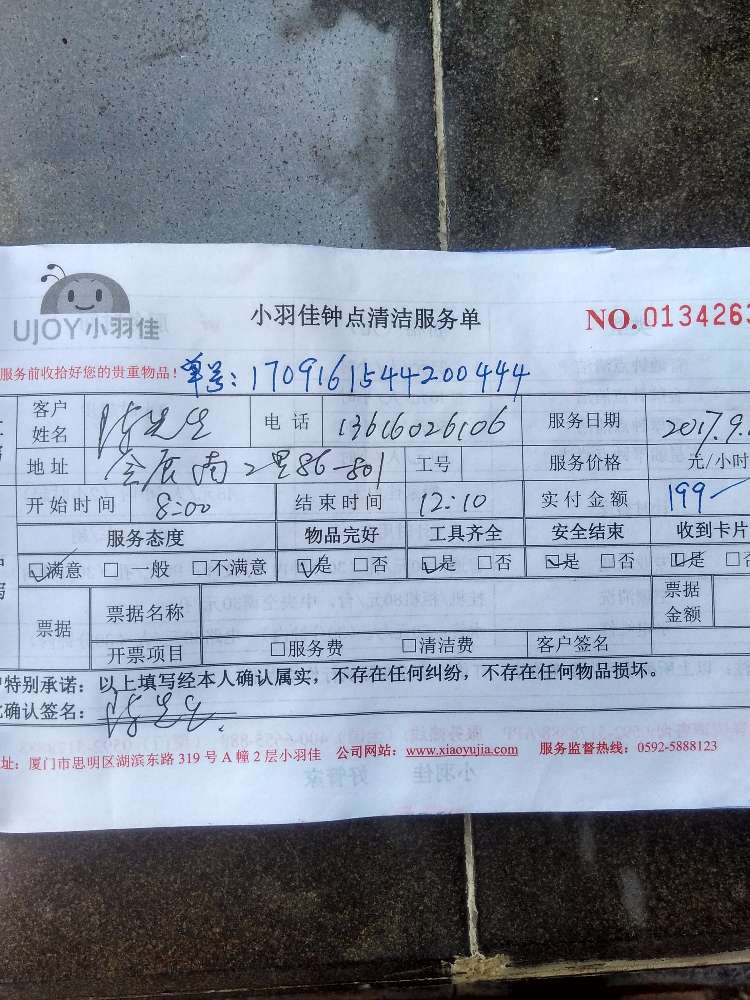 UJOY小羽佳
小羽佳钟点清洁服务单
NO.0134263
服务前收拾好您的贵重物品!
单号:1709161544200444
客户姓名 陈先生 电话 13616026106 服务日期 2017.9.
地址 南2里86-801 工号 服务价格 元/小时
开始时间 8:00 结束时间 12:10 实付金额 199
服务态度 物品完好 工具齐全 安全结束 收到卡片
☑满意 □一般 □不满意 ☑是 □否 ☑是 □否 ☑是 □否 ☑是 □否
票据 票据名称 票据金额
开票项目 □服务费 □清洁费 客户签名
特别承诺:以上填写经本人确认属实,不存在任何纠纷,不存在任何物品损坏。
确认签名:陈先生
址:厦门市思明区湖滨东路319号A幢2层小羽佳 公司网站:www.xiaoyujia.com 服务监督热线:0592-5888123